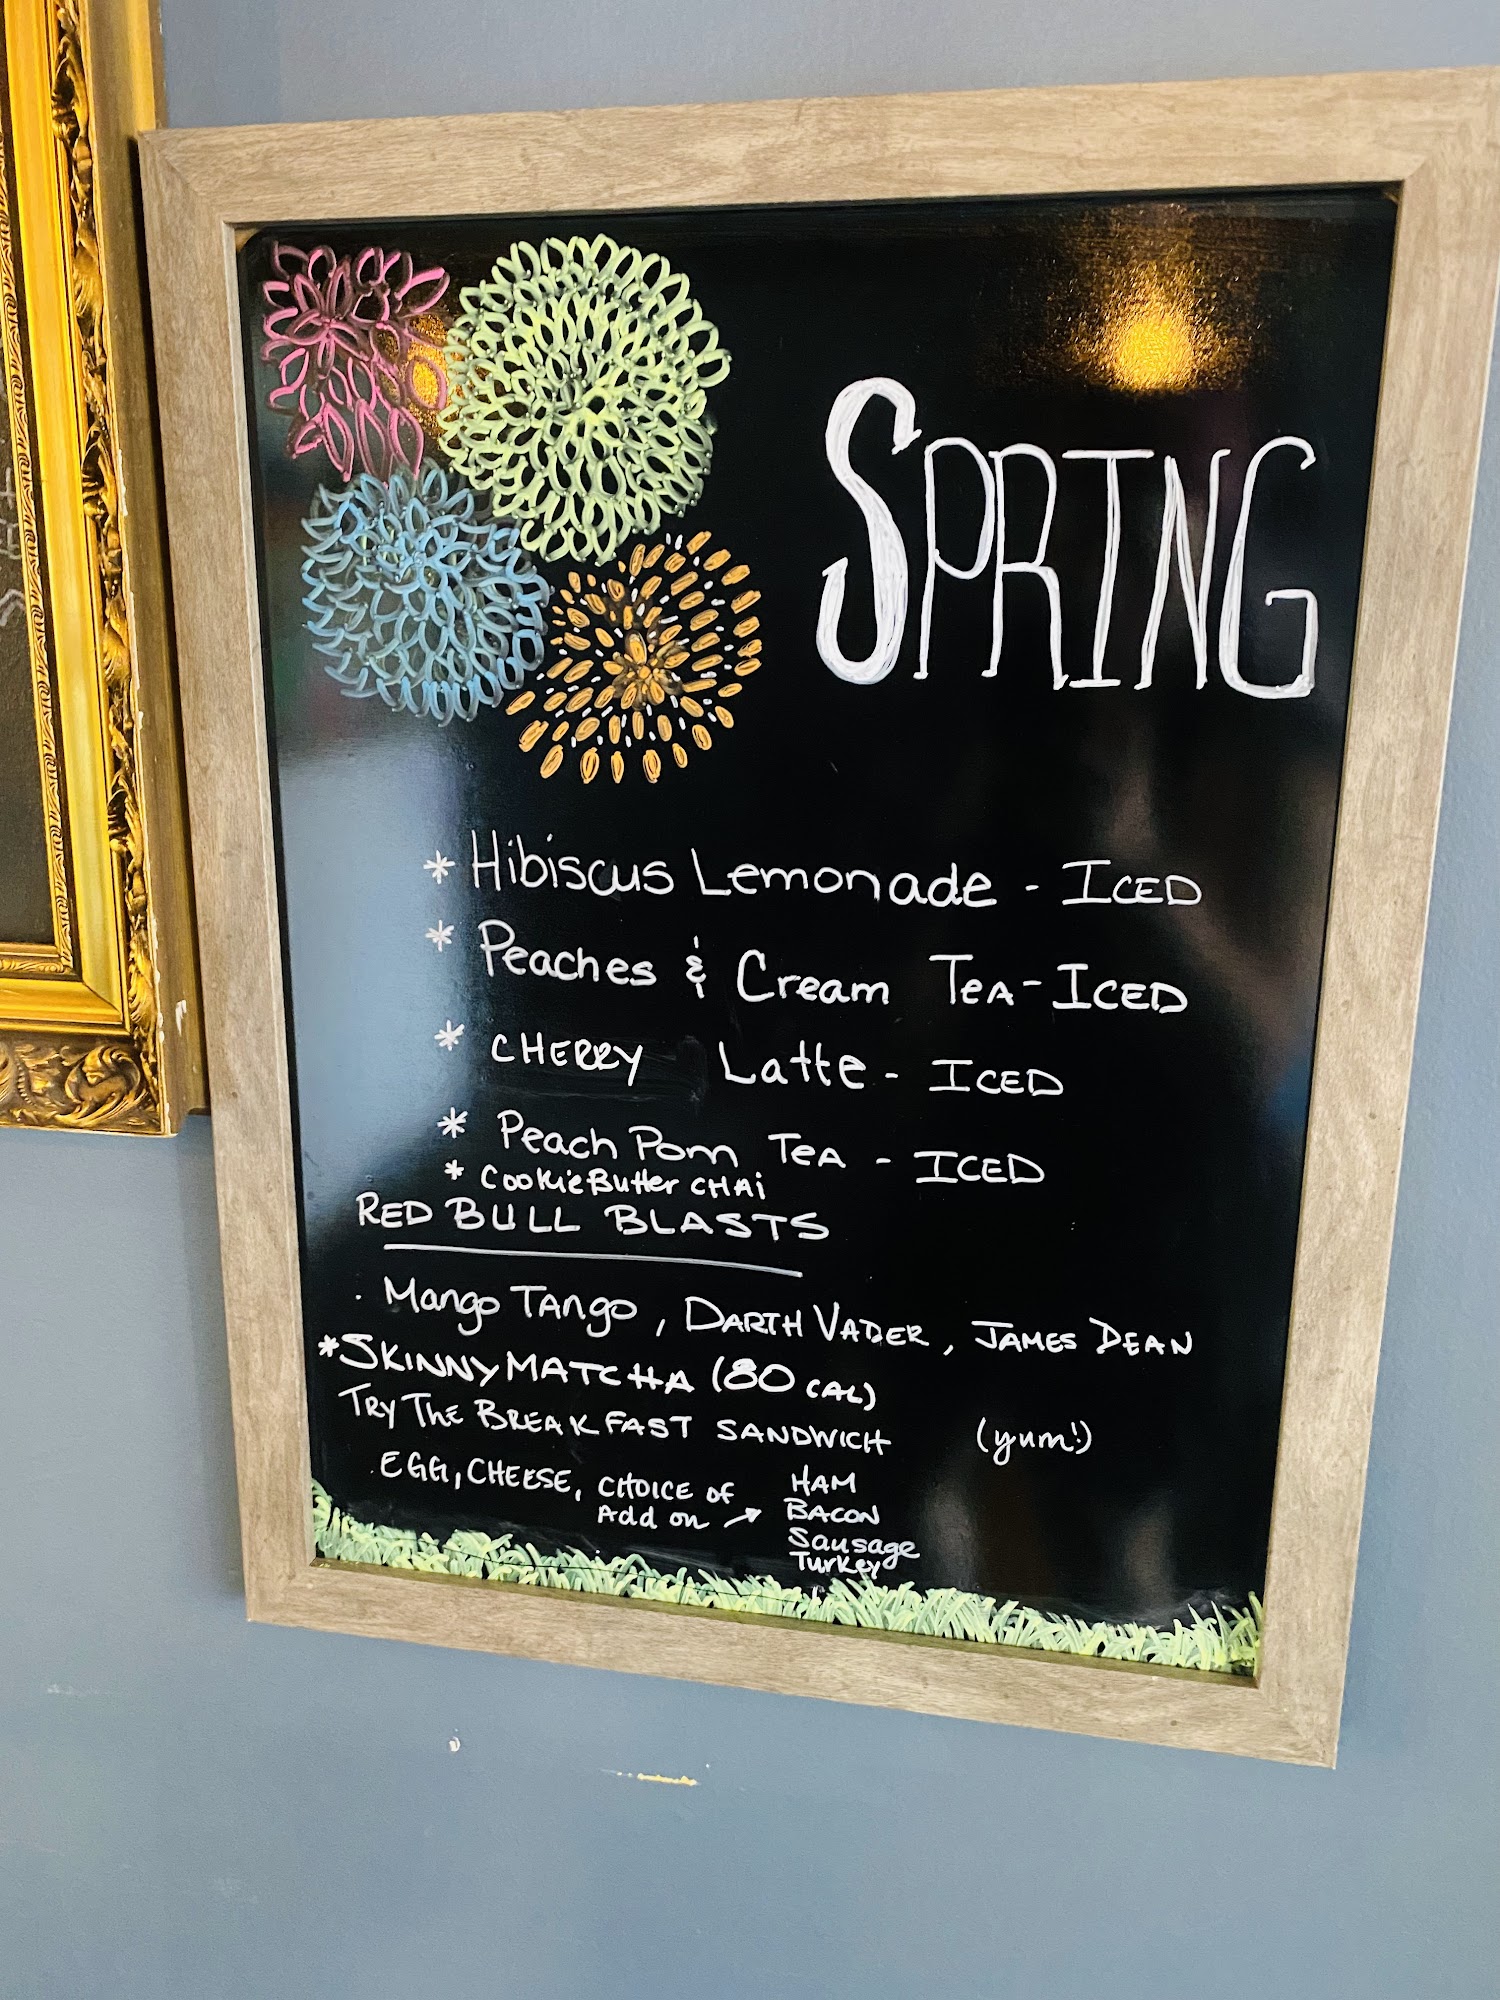 SPRING
* Hibiscus Lemonade - ICED
* Peaches & Cream TeA - ICED
* CHERRY Latte - ICED
* Peach Pom TeA - ICED
* Cookie Butter CHAi
RED BULL BLASTS
. Mango TANgo, DARTH VADER, JAMES DEAN
*SKINNY MATCHA (80 CAL)
TRY THE BREAKFAST SANDWICH (yum!)
. EGG, CHEESE, CHOICE OF HAM
Add on → BACON
Sausage
Turkey